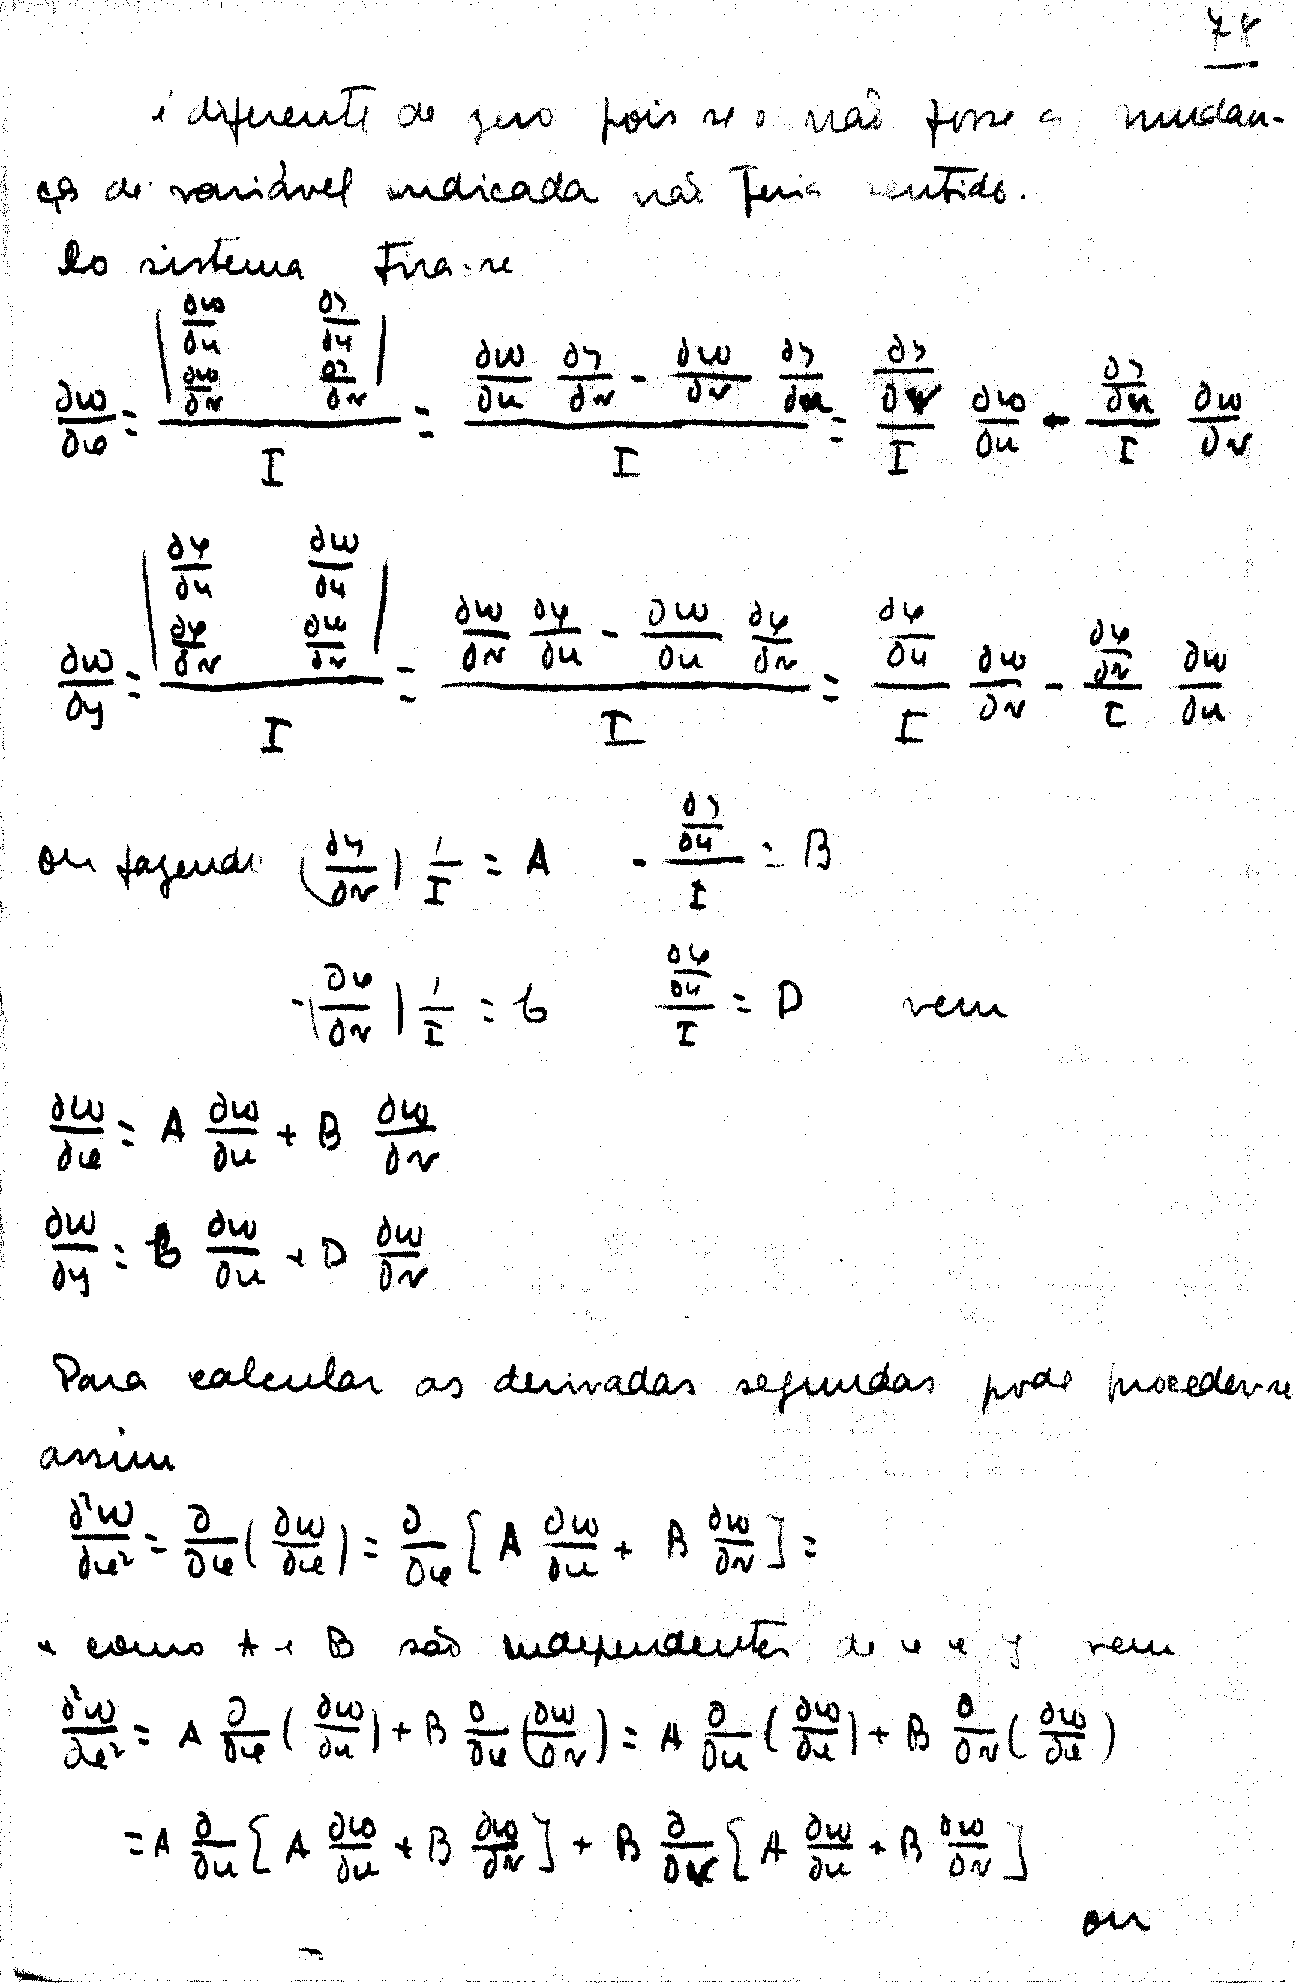 74
é diferente de zero pois se o não fosse a mudan-
ça de variável indicada não teria sentido.
Do sistema tira-se
∂w/∂x = |∂w/∂u ∂y/∂u ; ∂w/∂v ∂y/∂v| / I = (∂w/∂u ∂y/∂v - ∂w/∂v ∂y/∂u) / I = (∂y/∂v)/I ∂w/∂u - (∂y/∂u)/I ∂w/∂v
∂w/∂y = |∂x/∂u ∂w/∂u ; ∂x/∂v ∂w/∂v| / I = (∂w/∂v ∂x/∂u - ∂w/∂u ∂x/∂v) / I = (∂x/∂u)/I ∂w/∂v - (∂x/∂v)/I ∂w/∂u
ou fazendo (∂y/∂v) 1/I = A - (∂y/∂u)/I = B
-(∂x/∂v) 1/I = C (∂x/∂u)/I = D vem
∂w/∂x = A ∂w/∂u + B ∂w/∂v
∂w/∂y = C ∂w/∂u + D ∂w/∂v
Para calcular as derivadas segundas pode proceder-se
assim
∂²w/∂x² = ∂/∂x (∂w/∂x) = ∂/∂x [A ∂w/∂u + B ∂w/∂v] =
e como A e B são independentes de x e y vem
∂²w/∂x² = A ∂/∂x (∂w/∂u) + B ∂/∂x (∂w/∂v) = A ∂/∂u (∂w/∂x) + B ∂/∂v (∂w/∂x)
= A ∂/∂u [A ∂w/∂u + B ∂w/∂v] + B ∂/∂v [A ∂w/∂u + B ∂w/∂v]
ou